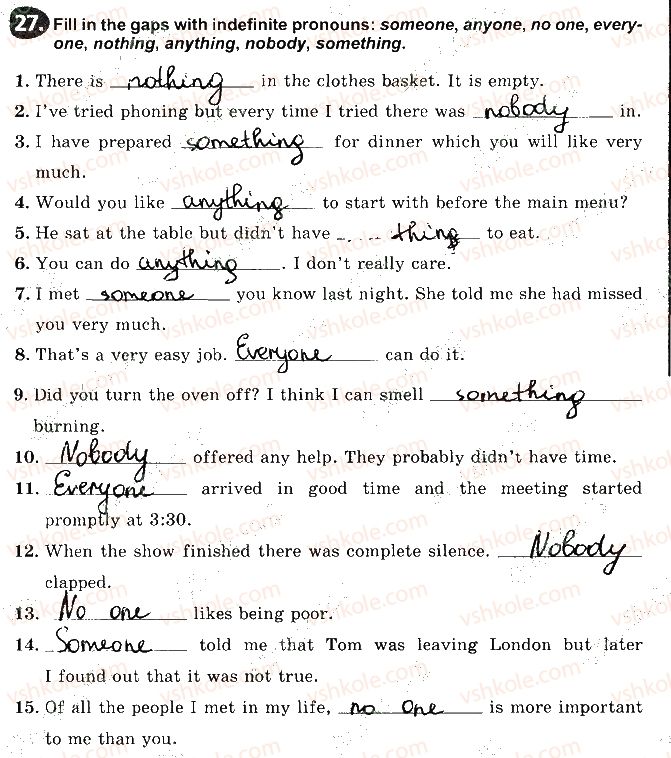 27. Fill in the gaps with indefinite pronouns: someone, anyone, no one, every-
one, nothing, anything, nobody, something.
1. There is nothing in the clothes basket. It is empty.
2. I've tried phoning but every time I tried there was nobody in.
3. I have prepared something for dinner which you will like very
much.
4. Would you like anything to start with before the main menu?
5. He sat at the table but didn't have thing to eat.
6. You can do anything. I don't really care.
7. I met someone you know last night. She told me she had missed
you very much.
8. That's a very easy job. Everyone can do it.
9. Did you turn the oven off? I think I can smell something
burning.
10. Nobody offered any help. They probably didn't have time.
11. Everyone arrived in good time and the meeting started
promptly at 3:30.
12. When the show finished there was complete silence. Nobody
clapped.
13. No one likes being poor.
14. Someone told me that Tom was leaving London but later
I found out that it was not true.
15. Of all the people I met in my life, no one is more important
to me than you.